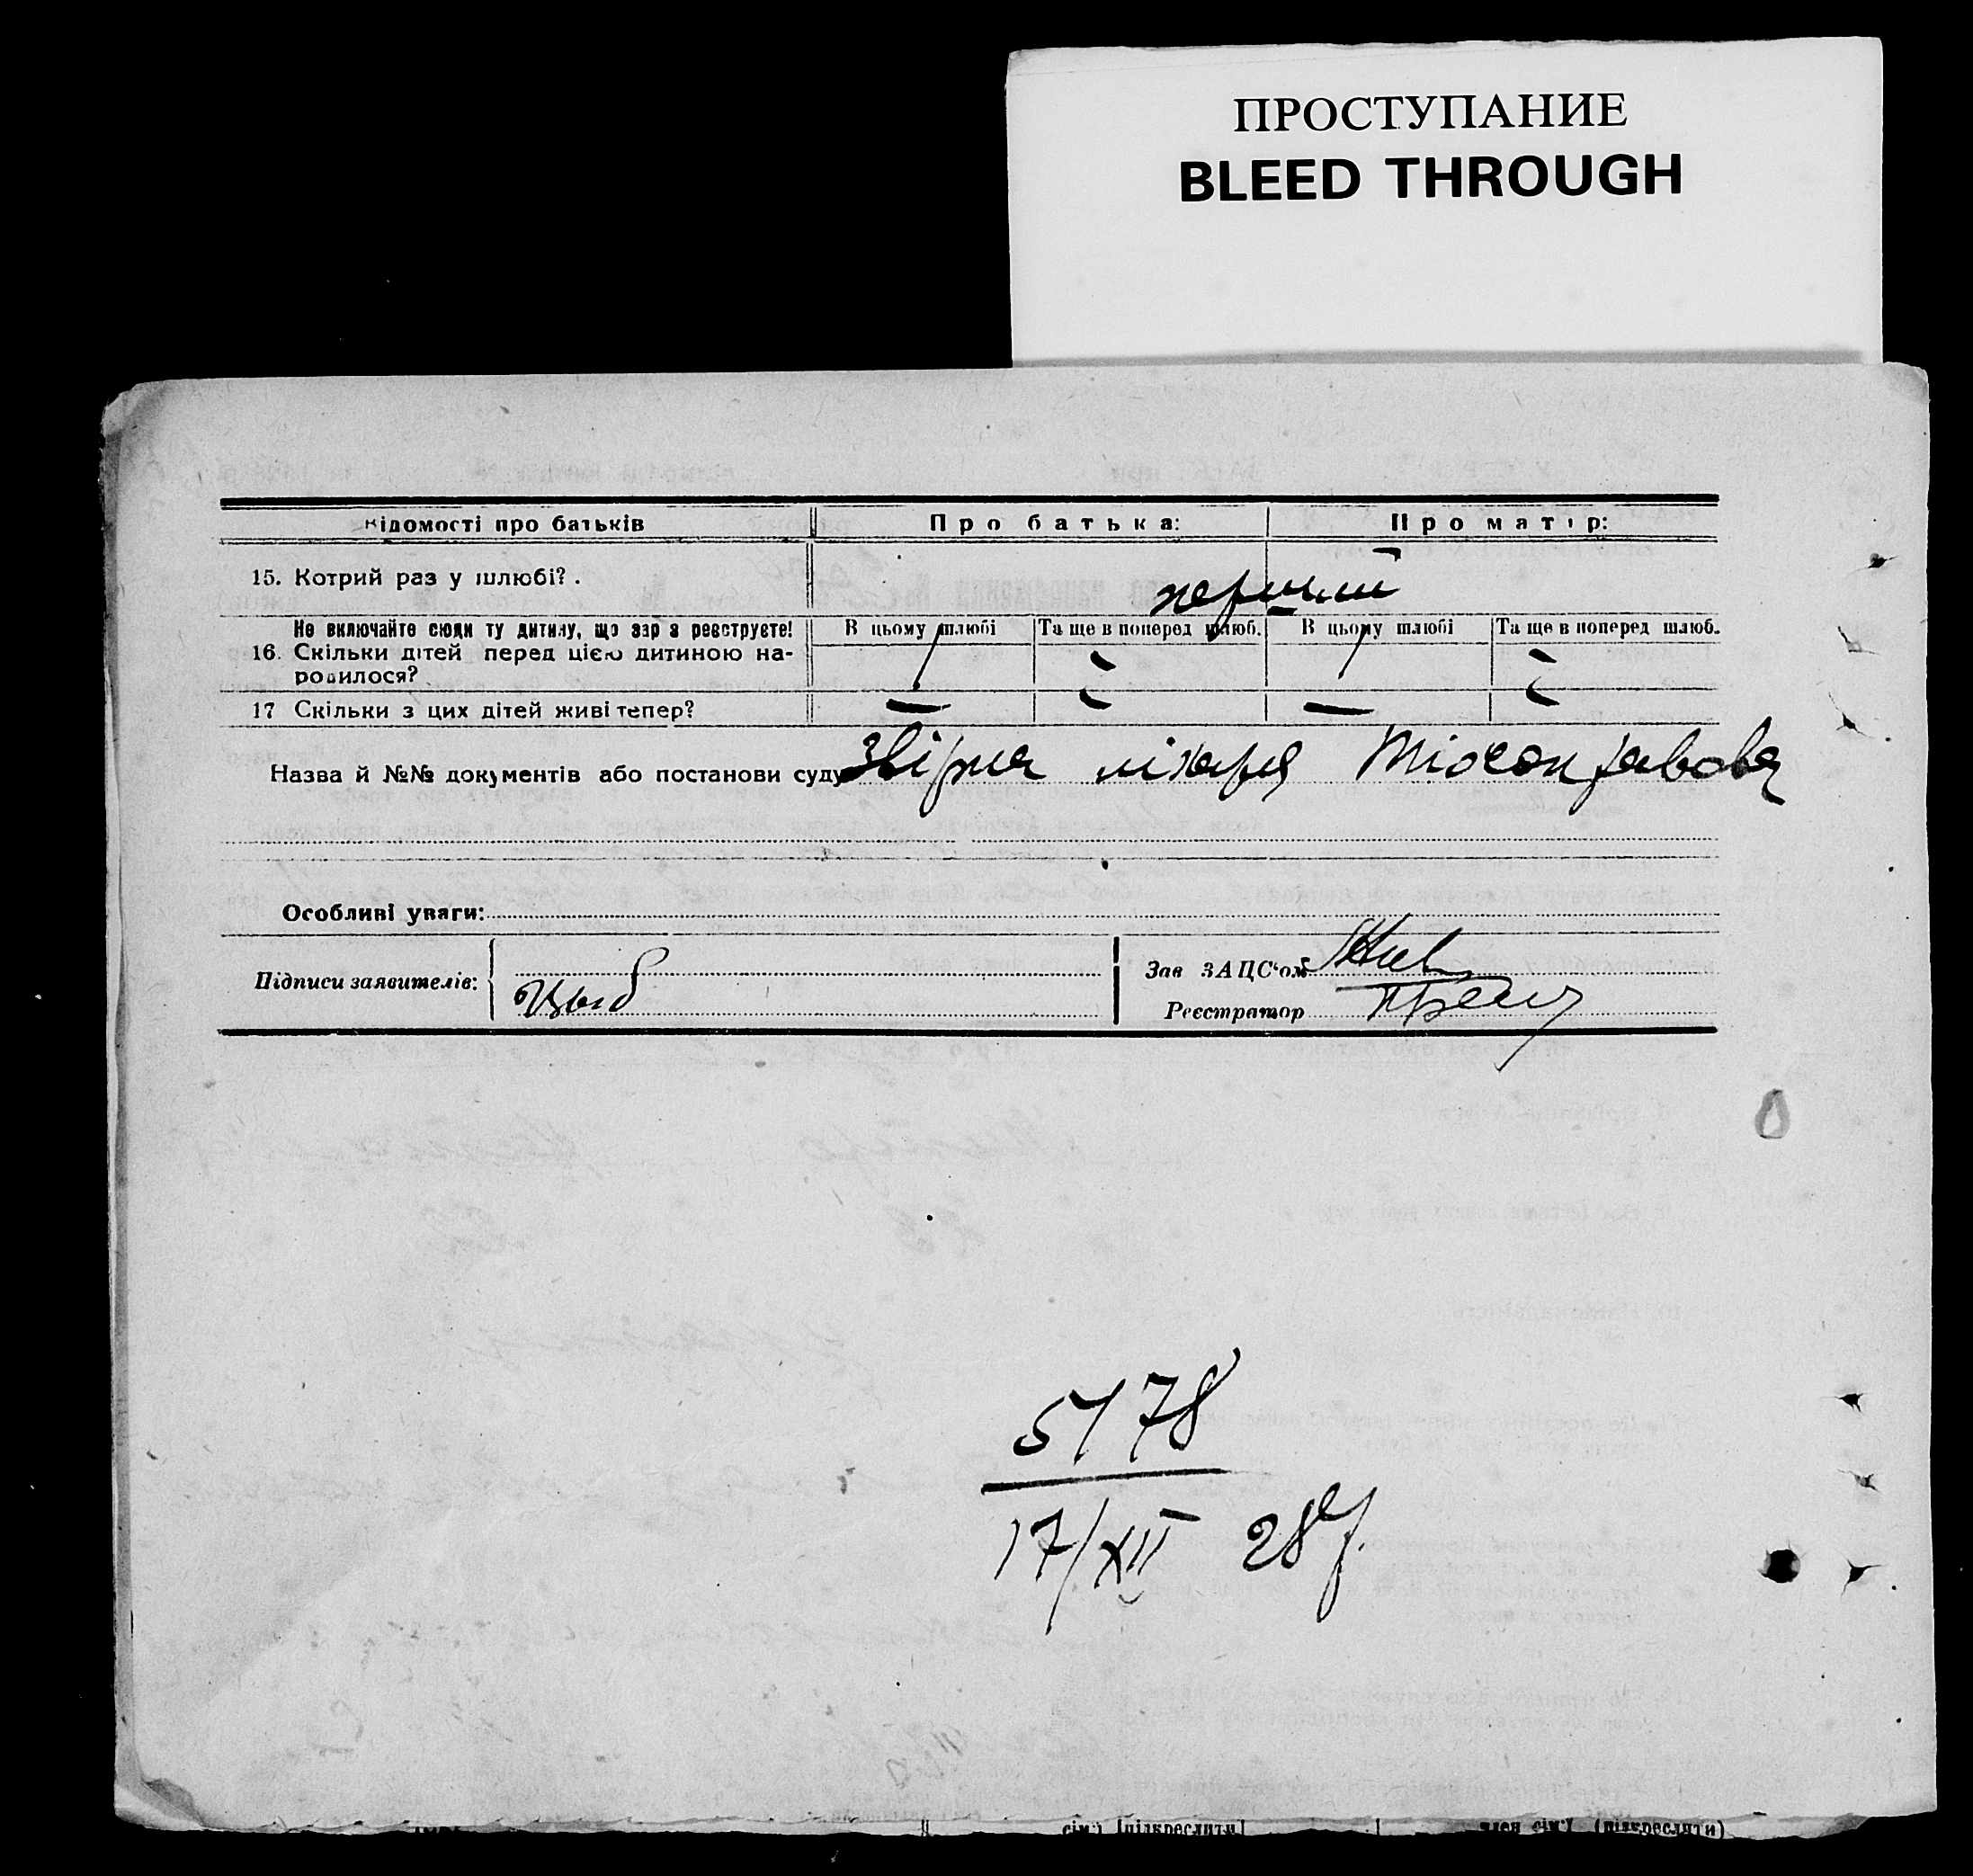 ПРОСТУПАНИЕ
BLEED THROUGH
Відомості про батьків Про батька: Про матір:
15. Котрий раз у шлюбі?. перший
Не включайте сюди ту дитину, що зар з реєструєте! В цьому шлюбі Та ще в поперед шлюб. В цьому шлюбі Та ще в поперед шлюб.
16. Скільки дітей перед цією дитиною на- 1 - 1 -
родилося?
17 Скільки з цих дітей живі тепер? — - — -
Назва й №№ документів або постанови суду лікаря
Особливі уваги:
Підписи заявителів: Зав ЗАЦС'ом
Реєстратор
5178
17/XII 28 р.
сім'ї (підкреслити) член сім'ї (підкреслити)